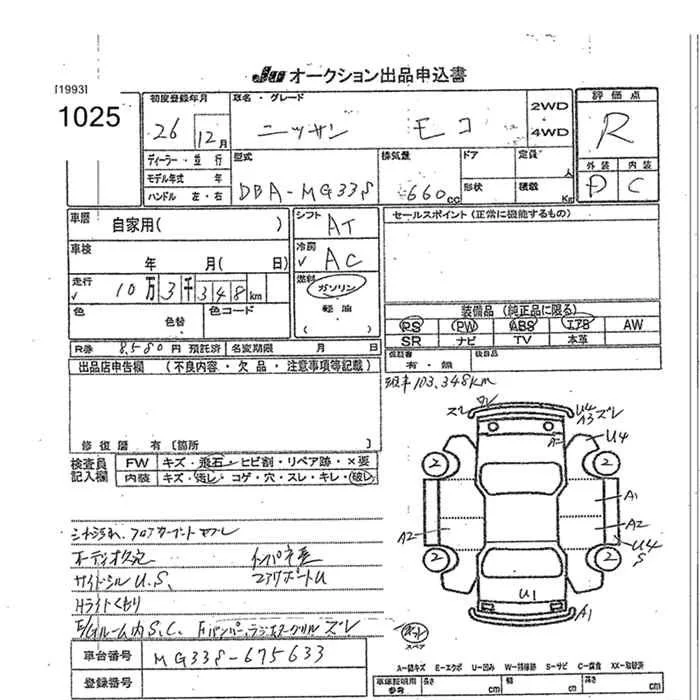 JU オークション出品申込書
[1993]
1025
初度登録年月
26 12月
車名・グレード
ニッサン モコ
2WD
4WD
評価点
R
外装 内装
D C
ディーラー・並行
モデル年式 年
ハンドル 左・右
型式
DBA-MG33S
排気量
660cc
ドア
形状
定員 人
積載 Kg
車歴
自家用( )
シフト
AT
車検
年 月( 日)
冷房
AC
走行
10万3千348km
燃料
ガソリン
軽油
( )
色
色替
色コード
R券 8,580円 預託済 名変期限 月 日
セールスポイント (正常に機能するもの)
装備品 (純正品に限る)
PS PW ABS エアB AW
SR ナビ TV 本革
保証書
有・無
後日品
103,348km
出品店申告欄 (不良内容・欠品・注意事項等記載)
修復歴 有 〔箇所 〕
検査員
記入欄
FW キズ・飛石・ヒビ割・リペア跡・×要
内装 キズ・汚し・コゲ・穴・スレ・キレ・破レ
オーディオ欠
サイドシル U.S、
コアサポートU
Hライトくもり
E/Gルーム内S.C、
ズレ
ズレ
U4
A3 ズレ
U4
2
2
A1
A2
A2
U4
S
2
2
U1
A1
スペア
車台番号 MG33S-675633
登録番号
A-線キズ E-エクボ U-凹み W-補修跡 S-サビ C-腐食 XX-取替済
車庫証明用
参考
長さ cm
幅 cm
高さ cm